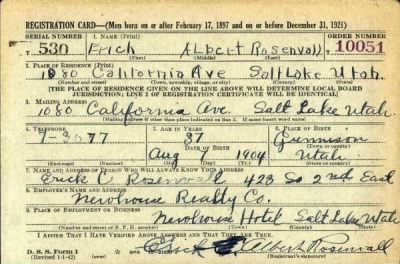 REGISTRATION CARD—(Men born on or after February 17, 1897 and on or before December 31, 1921)
SERIAL NUMBER 1. NAME (Print) ORDER NUMBER
530 Erich Albert Rosenvall 10051
(First) (Middle) (Last)
2. PLACE OF RESIDENCE (Print)
1080 California Ave Salt Lake Utah
(Number and street) (Town, township, village, or city) (County) (State)
[THE PLACE OF RESIDENCE GIVEN ON THE LINE ABOVE WILL DETERMINE LOCAL BOARD
JURISDICTION; LINE 2 OF REGISTRATION CERTIFICATE WILL BE IDENTICAL]
3. MAILING ADDRESS
1080 California Ave. Salt Lake Utah
[Mailing address if other than place indicated on line 2. If same insert word same]
4. TELEPHONE 5. AGE IN YEARS 6. PLACE OF BIRTH
37 Gunnison
DATE OF BIRTH (Town or county)
Aug 1904 Utah
(Exchange) (Number) (Mo.) (Day) (Yr.) (State or country)
7. NAME AND ADDRESS OF PERSON WHO WILL ALWAYS KNOW YOUR ADDRESS
Erick C Rosenvall 423 So 2nd East
8. EMPLOYER'S NAME AND ADDRESS
Newhouse Realty Co.
9. PLACE OF EMPLOYMENT OR BUSINESS
Newhouse Hotel Salt Lake Utah
(Number and street or R. F. D. number) (Town) (County) (State)
I AFFIRM THAT I HAVE VERIFIED ABOVE ANSWERS AND THAT THEY ARE TRUE.
D. S. S. Form 1 Albert Rosenvall
(Revised 1-1-42) (over)